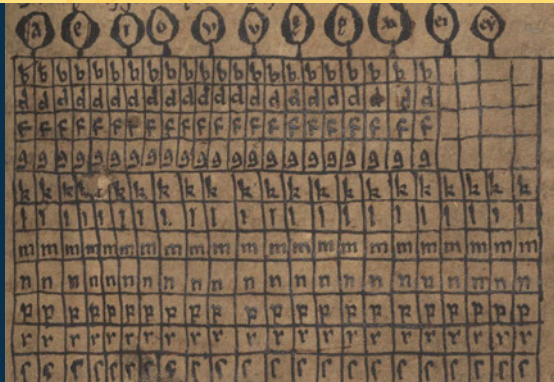 a e ı o v v au ei ey
b b b b b b b b b b b b b b b b b b b b b b
d d d d d d d d d d d d d d d d d d d d d d
f f f f f f f f f f f f f f f f f f f f f f
g g g g g g g g g g g g g g g g g g g g g g
k k k k k k k k k k k k k k k k k k k k k
l l l l l l l l l l l l l l l l l l l l l l
m m m m m m m m m m m m m m m m m m m m m m
n n n n n n n n n n n n n n n n n n n n n n
p p p p p p p p p p p p p p p p p p p p p p
r r r r r r r r r r r r r r r r r r r r r r
ſ ſ ſ ſ ſ ſ ſ ſ ſ ſ ſ ſ ſ ſ ſ ſ ſ ſ ſ ſ ſ ſ